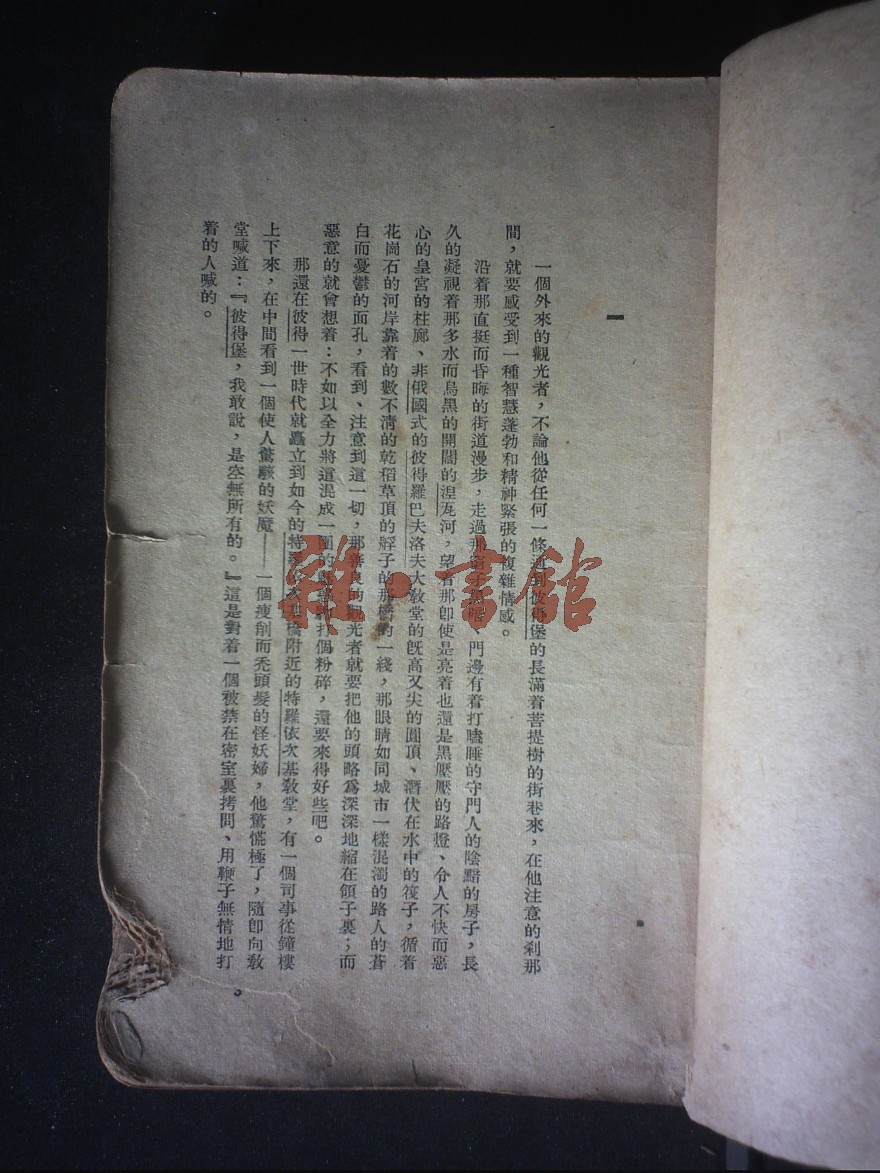 一
一個外來的觀光者，不論他從任何一條通到彼得堡的長滿着菩提樹的街巷來，在他注意的剎那
間，就要感受到一種智慧蓬勃和精神緊張的複雜情感。
沿着那直挺而昏晦的街道漫步，走過那、門邊有着打瞌睡的守門人的陰黯的房子，長
久的凝視着那多水而烏黑的開闊的湼瓦河，望着那卽使是亮着也還是黑壓壓的路燈、令人不快而惡
心的皇宮的柱廊、非俄國式的彼得羅巴夫洛夫大敎堂的旣高又尖的圓頂、潛伏在水中的筏子，循着
花崗石的河岸靠着的數不淸的乾稻草頂的艀子的那橋的一綫，那眼睛如同城市一樣混濁的路人的蒼
白而憂鬱的面孔，看到、注意到這一切，那善良的觀光者就要把他的頭略爲深深地縮在領子裏；而
惡意的就會想着：不如以全力將這混成一團的打個粉碎，還要來得好些吧。
那還在彼得一世時代就矗立到如今的特橋附近的特羅依次基敎堂，有一個司事從鐘樓
上下來，在中間看到一個使人驚駭的妖魔——一個瘦削而禿頭髮的怪妖婦，他驚慌極了，隨卽向敎
堂喊道：『彼得堡，我敢說，是空無所有的。』這是對着一個被禁在密室裏拷問、用鞭子無情地打
着的人喊的。
雜·書館